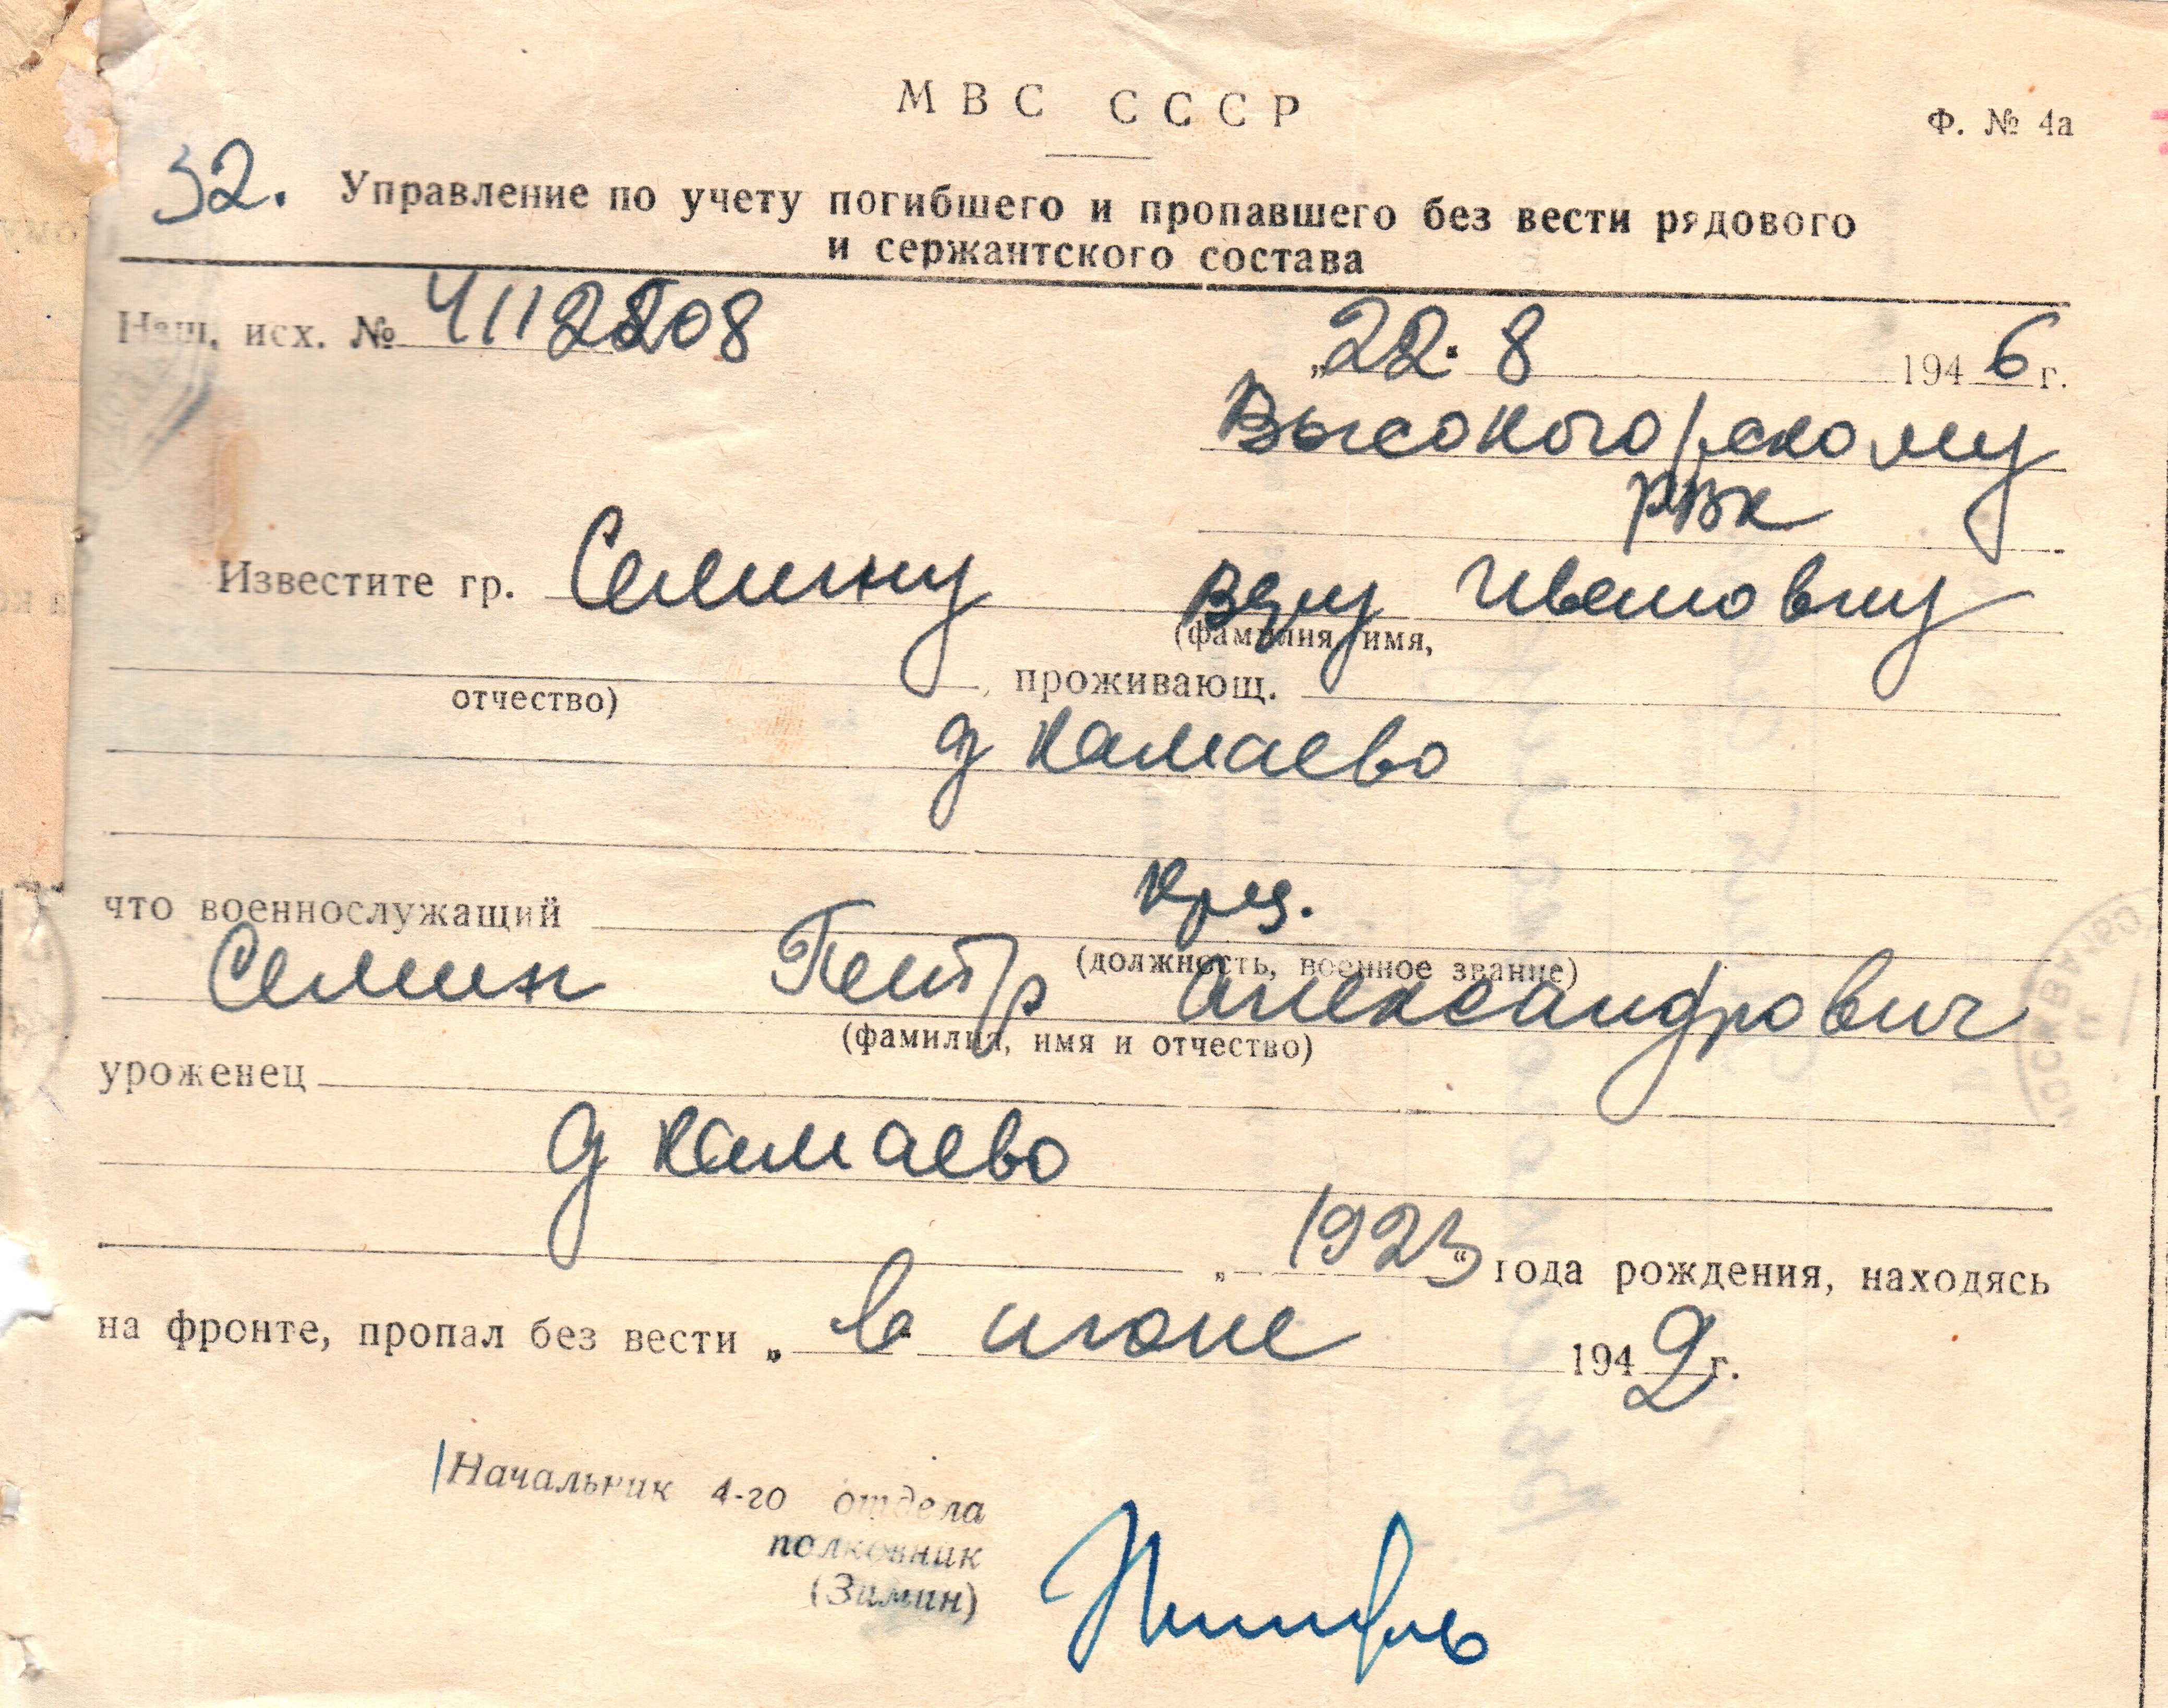 МВС СССР
Ф. № 4а
32. Управление по учету погибшего и пропавшего без вести рядового
и сержантского состава
Наш. исх. № 4112208
„22." 8 1946 г.
Высокогорскому
РВК
Известите гр. Семину Веру Ивановну
(фамилия, имя,
отчество) , проживающ.
д Камаево
что военнослужащий кр-ц.
(должность, военное звание)
Семин Петр Александрович
(фамилия, имя и отчество)
уроженец
д Камаево
„ 1923 " года рождения, находясь
на фронте, пропал без вести „ в июне 1942 г.
Начальник 4-го отдела
полковник
(Зимин)